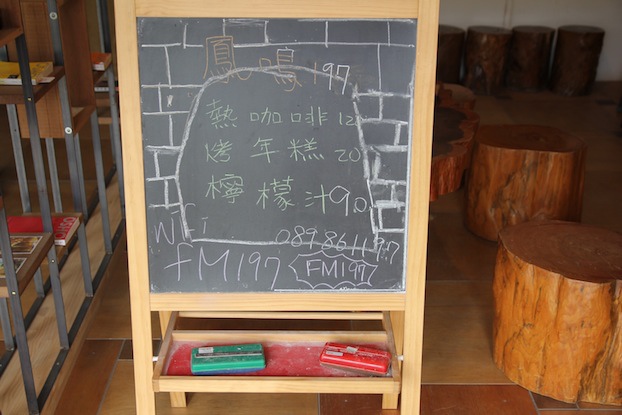 鳳鳴197
熱咖啡12
烤年糕20
檸檬汁90
Wifi 089-861197
FM197 FM197